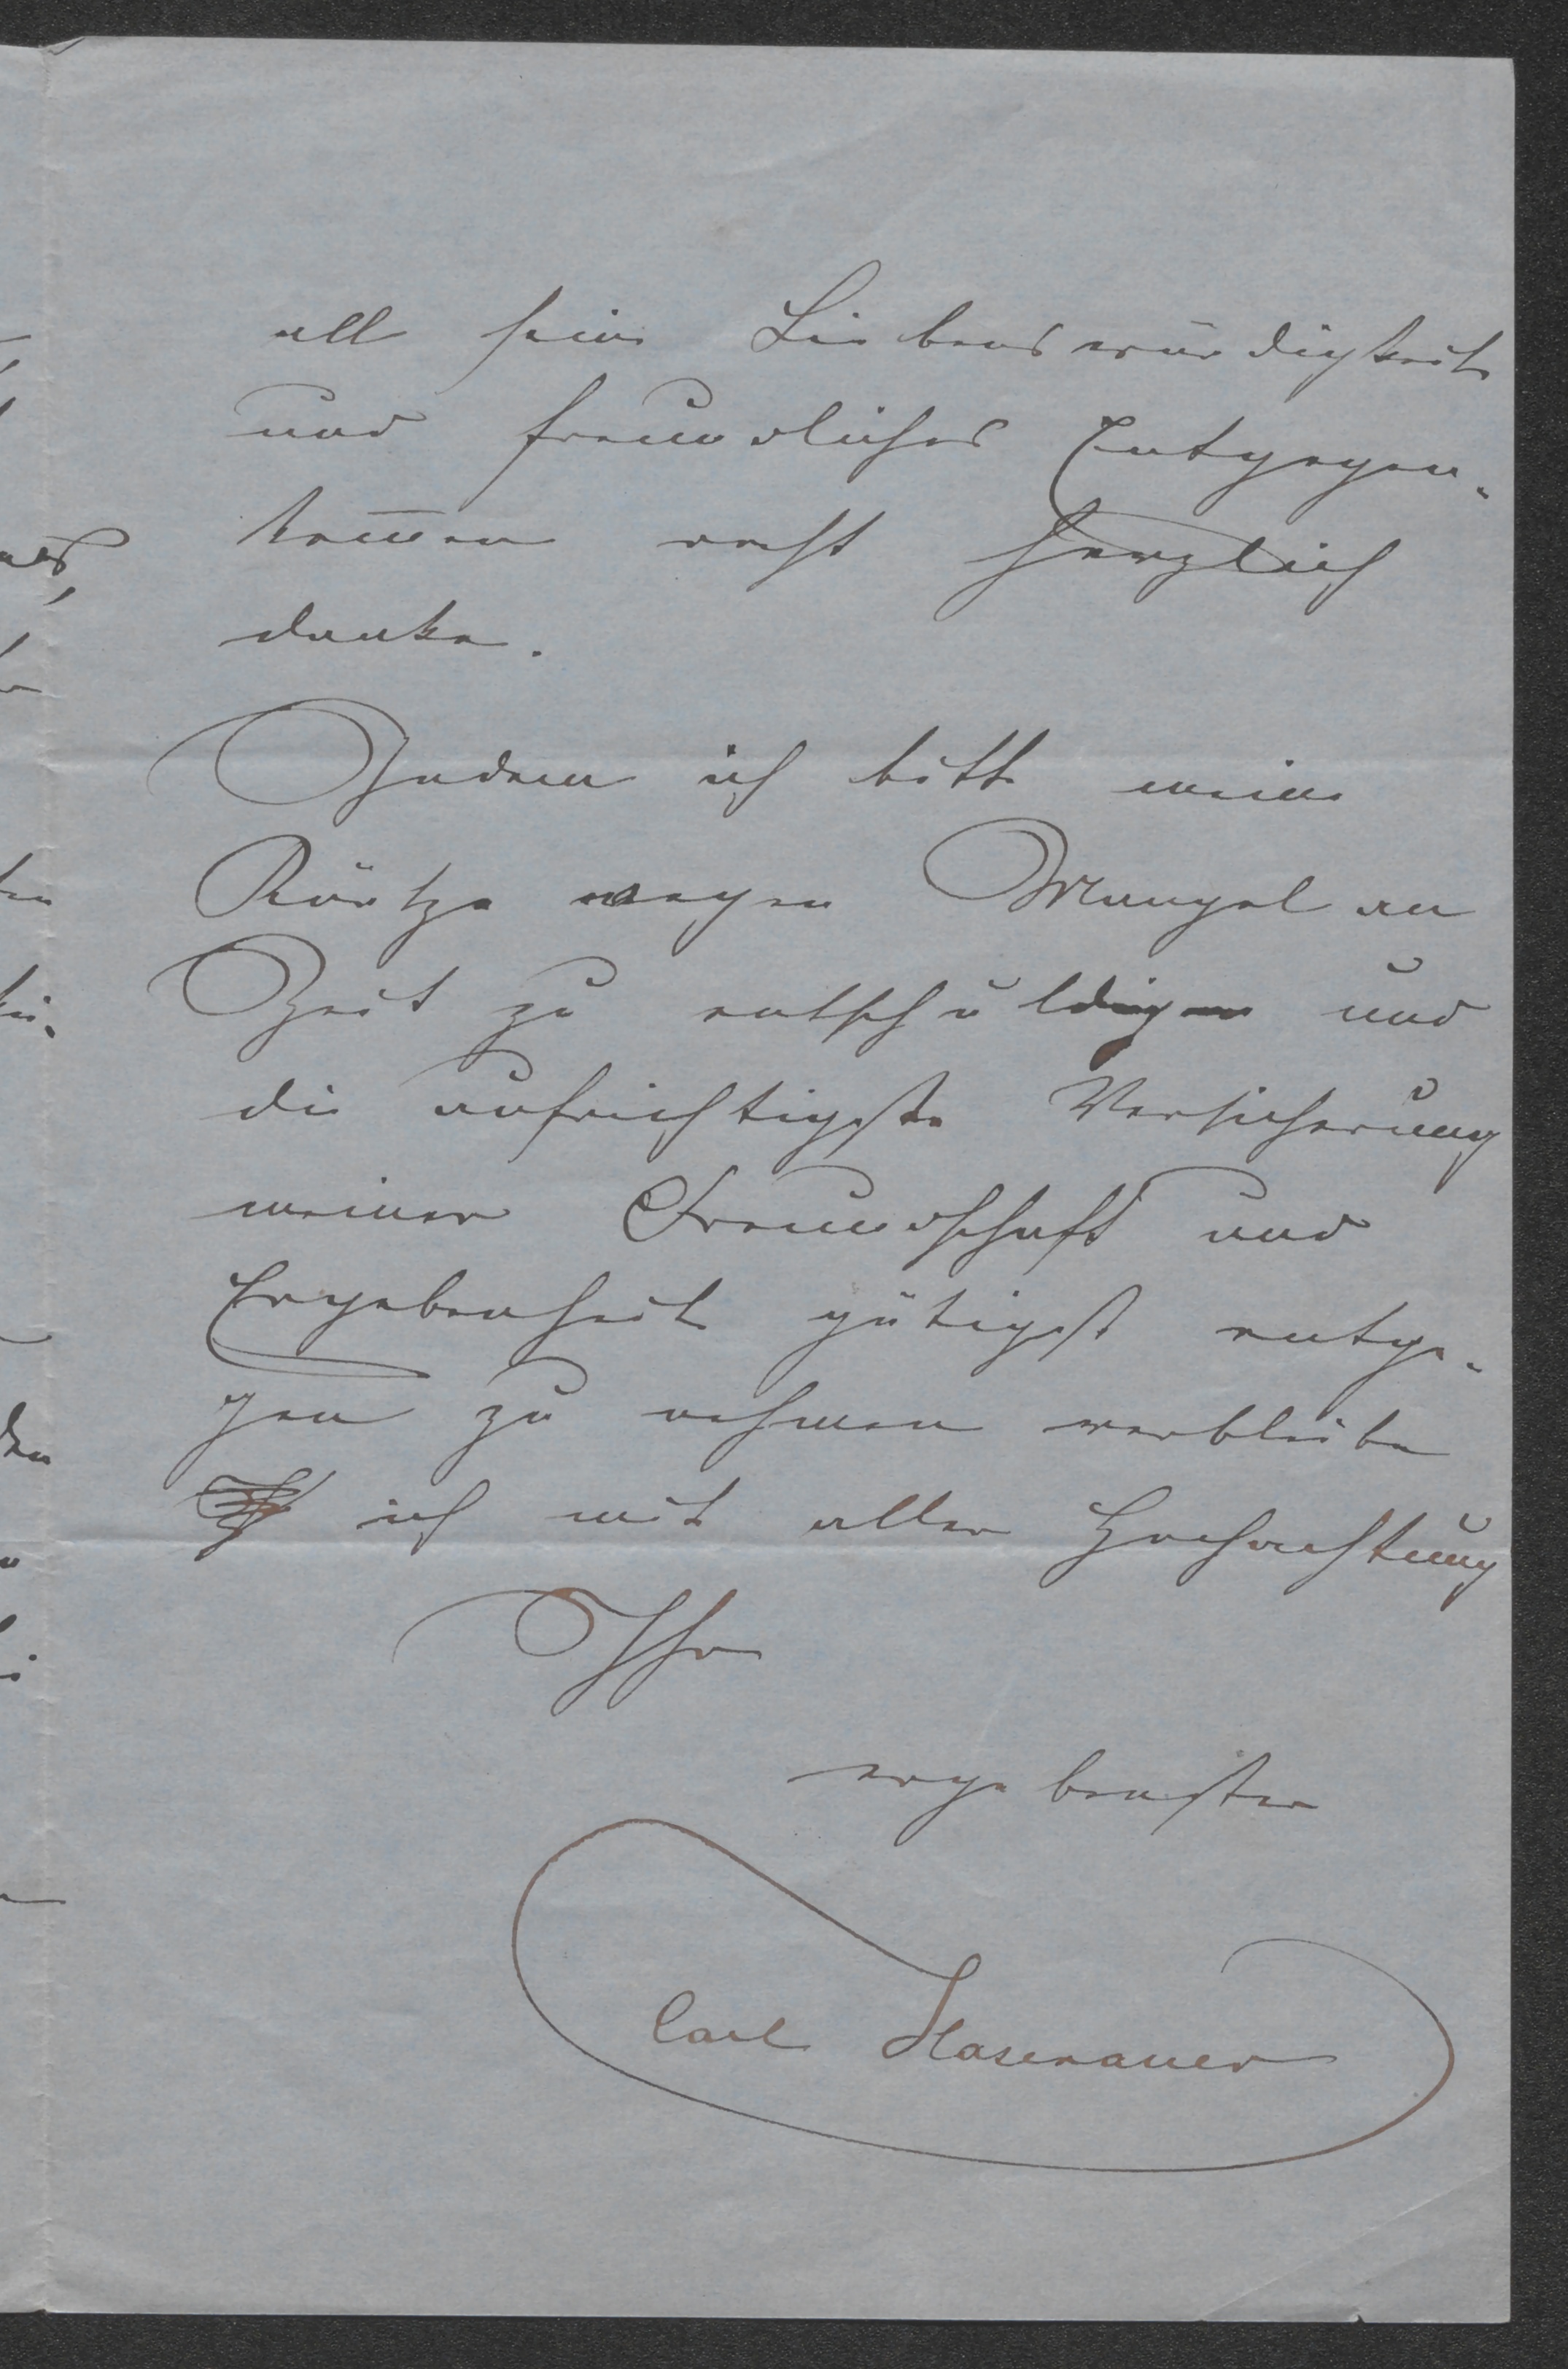 all seine Liebenswürdigkeit
und freundliches Entgegen-
kom̅en recht herzlich
danke.
Indem ich bitte meine
Kürtze wegen Mangel an
Zeit zu entschuldigen und
die aufrichtigste Versicherung
meiner Freundschaft und
Ergebenheit gütigst entge-
gen zu nehmen verbleibe
ich mit aller Hochachtung
Ihr
ergebenster
Carl Hasenauer